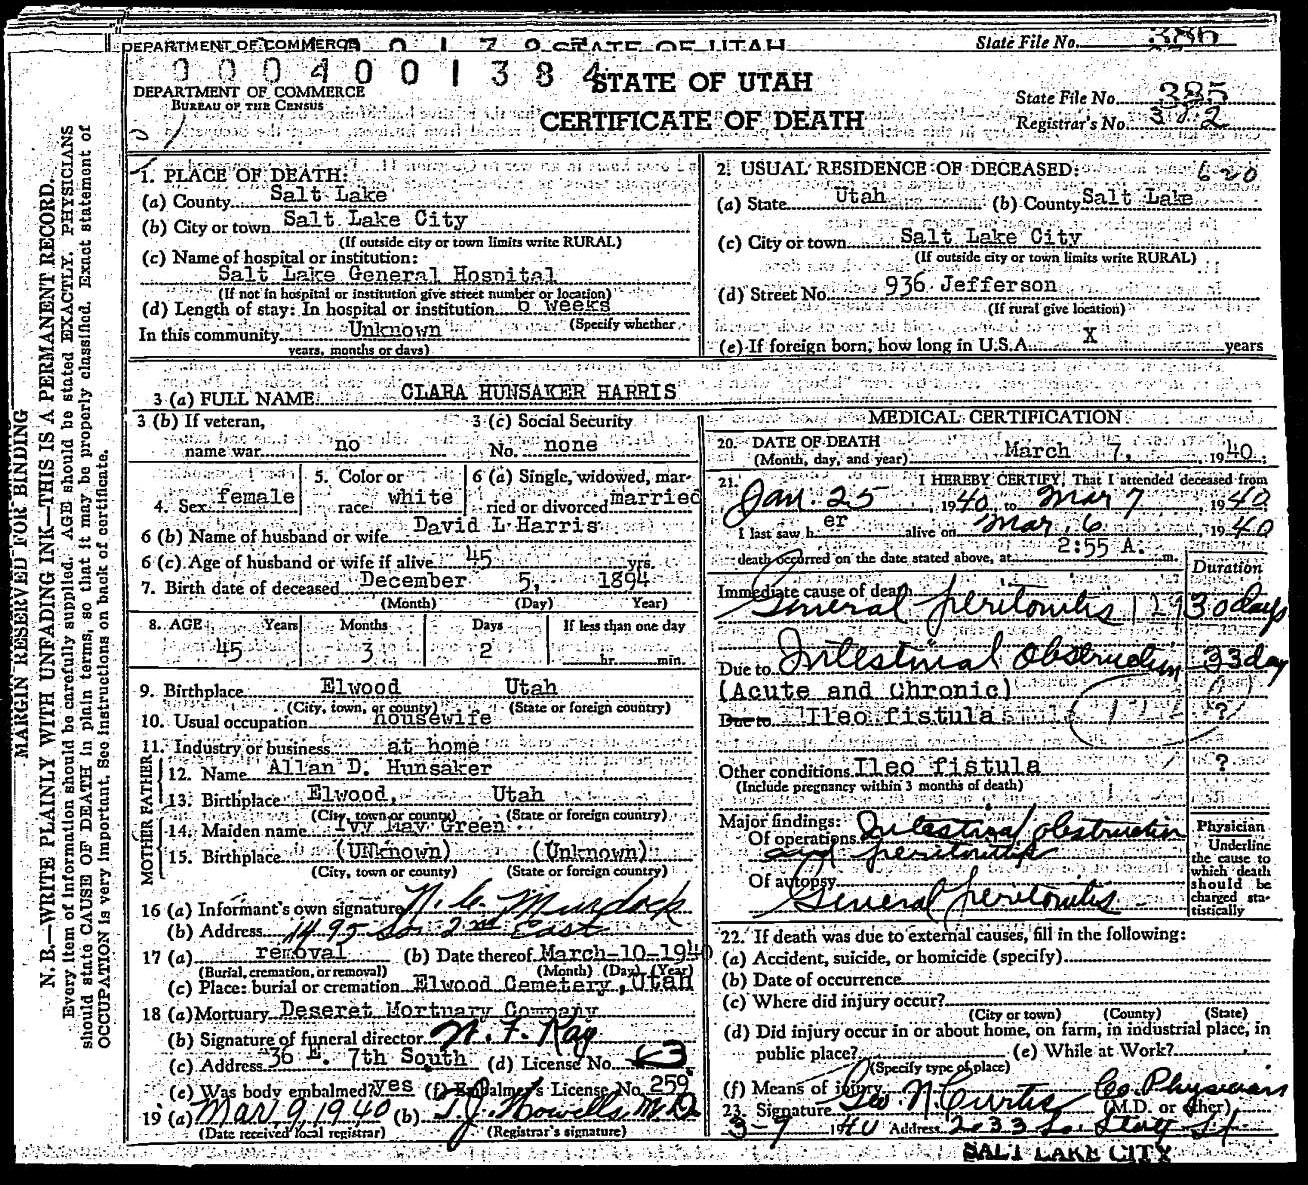 DEPARTMENT OF COMMERCE
STATE OF UTAH
State File No. 386
0 0 0 4 0 0 1 3 8 4
STATE OF UTAH
DEPARTMENT OF COMMERCE
BUREAU OF THE CENSUS
CERTIFICATE OF DEATH
State File No. 385
Registrar's No. 382
1. PLACE OF DEATH:
(a) County Salt Lake
(b) City or town Salt Lake City
(If outside city or town limits write RURAL)
(c) Name of hospital or institution:
Salt Lake General Hospital
(If not in hospital or institution give street number or location)
(d) Length of stay: In hospital or institution 6 weeks
(Specify whether
In this community Unknown
years, months or days)
2. USUAL RESIDENCE OF DECEASED: 6-20
(a) State Utah (b) County Salt Lake
(c) City or town Salt Lake City
(If outside city or town limits write RURAL)
(d) Street No. 936 Jefferson
(If rural give location)
(e) If foreign born, how long in U.S.A. X years
3 (a) FULL NAME CLARA HUNSAKER HARRIS
3 (b) If veteran,
name war no
3 (c) Social Security
No. none
4. Sex female
5. Color or
race white
6 (a) Single, widowed, mar-
ried or divorced married
6 (b) Name of husband or wife David L Harris
6 (c) Age of husband or wife if alive 45 yrs.
7. Birth date of deceased December 5, 1894
(Month) (Day) Year)
8. AGE Years Months Days If less than one day
45 3 2 hr. min.
9. Birthplace Elwood Utah
(City, town, or county) (State or foreign country)
10. Usual occupation housewife
11. Industry or business at home
FATHER
12. Name Allan D. Hunsaker
13. Birthplace Elwood, Utah
(City, town or county) (State or foreign country)
MOTHER
14. Maiden name Ivy May Green
15. Birthplace (UNknown) (Unknown)
(City, town or county) (State or foreign country)
16 (a) Informant's own signature N. C. Murdock
(b) Address 1495 So. 2nd East
17 (a) removal (b) Date thereof March-10-1940
(Burial, cremation, or removal) (Month) (Day) (Year)
(c) Place: burial or cremation Elwood Cemetery, Utah
18 (a) Mortuary Deseret Mortuary Company
(b) Signature of funeral director N. F. Kay
(c) Address 36 E. 7th South (d) License No. 63
(e) Was body embalmed? yes (f) Embalmer's License No. 259
19 (a) Mar 9, 1940 (b) T. J. Howells M D
(Date received local registrar) (Registrar's signature)
MEDICAL CERTIFICATION
20. DATE OF DEATH
(Month, day, and year) March 7, 1940
21. I HEREBY CERTIFY, That I attended deceased from
Jan. 25, 1940 to Mar 7, 1940
I last saw her alive on Mar. 6 1940
death occurred on the date stated above, at 2:55 A. m.
Duration
Immediate cause of death
General peritonitis 129 30 days
Due to Intestinal Obstruction 33 day
(Acute and Chronic)
Due to Ileo fistula ?
Other conditions Ileo fistula ?
(Include pregnancy within 3 months of death)
Major findings:
Of operations Intestinal obstruction
and peritonitis
Of autopsy
General peritonitis
Physician
Underline
the cause to
which death
should be
charged sta-
tistically
22. If death was due to external causes, fill in the following:
(a) Accident, suicide, or homicide (specify)
(b) Date of occurrence
(c) Where did injury occur?
(City or town) (County) (State)
(d) Did injury occur in or about home, on farm, in industrial place, in
public place? (e) While at Work?
(Specify type of place)
(f) Means of injury
23. Signature Geo. N. Curtis Co. Physician
(M.D. or other)
3-9 1940 Address 2033 So. State St
SALT LAKE CITY
MARGIN RESERVED FOR BINDING
N. B.—WRITE PLAINLY WITH UNFADING INK—THIS IS A PERMANENT RECORD.
Every item of information should be carefully supplied. AGE should be stated EXACTLY. PHYSICIANS
should state CAUSE OF DEATH in plain terms, so that it may be properly classified. Exact statement of
OCCUPATION is very important. See instructions on back of certificate.